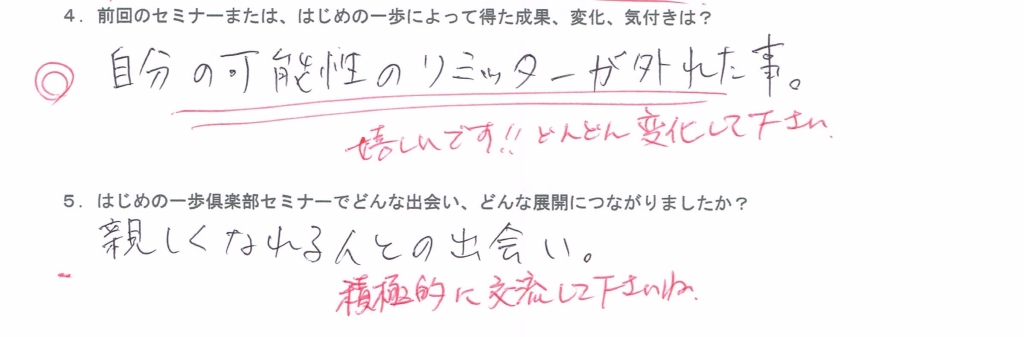 4．前回のセミナーまたは、はじめの一歩によって得た成果、変化、気付きは？
自分の可能性のリミッターが外れた事。
嬉しいです!!どんどん変化して下さい。
5．はじめの一歩倶楽部セミナーでどんな出会い、どんな展開につながりましたか？
親しくなれる人との出会い。
積極的に交流して下さいね。